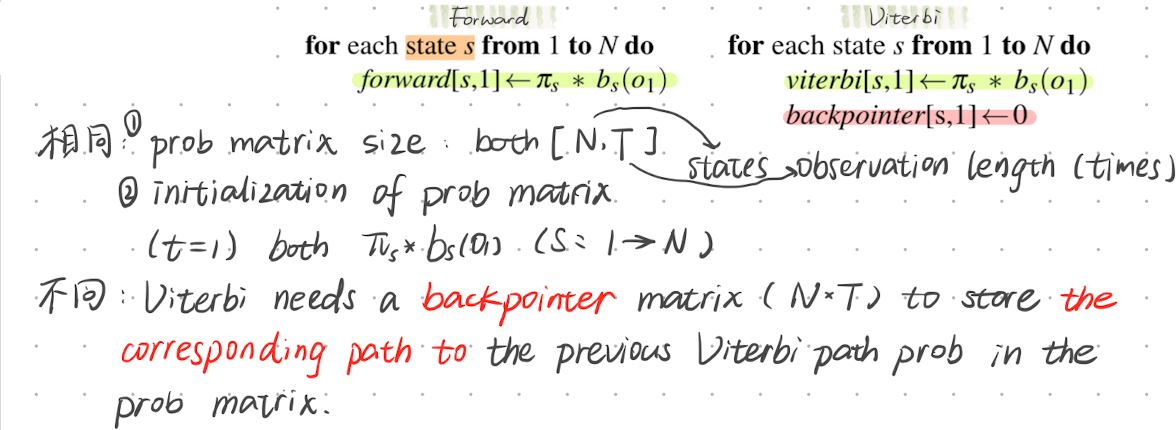 Forward
for each state s from 1 to N do
forward[s,1]←π_s * b_s(o_1)
Viterbi
for each state s from 1 to N do
viterbi[s,1]←π_s * b_s(o_1)
backpointer[s,1]←0
相同: ① prob matrix size : both [N,T]
states observation length (times)
② initialization of prob matrix
(t=1) both π_s * b_s(o_1) (S: 1→N)
不同: Viterbi needs a backpointer matrix (N*T) to store the
corresponding path to the previous Viterbi path prob in the
prob matrix.